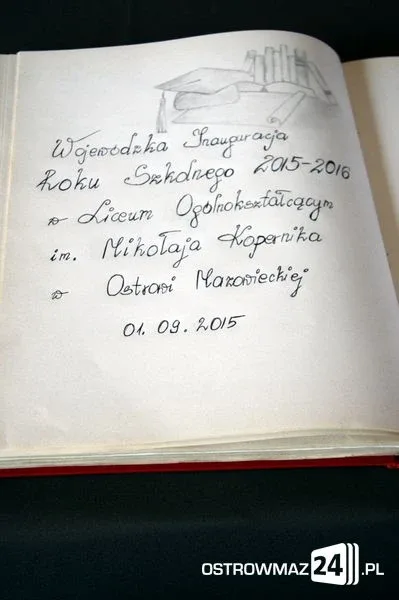 Wojewódzka Inauguracja
Roku Szkolnego 2015-2016
w Liceum Ogólnokształcącym
im. Mikołaja Kopernika
w Ostrowi Mazowieckiej
01.09.2015
OSTROWMAZ24.PL